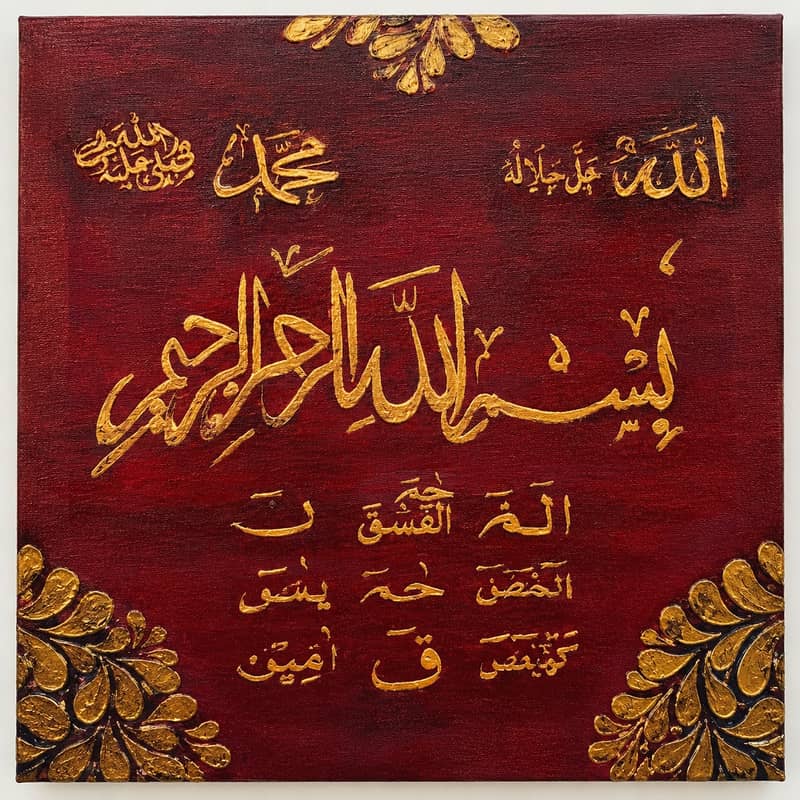 الله جل جلاله محمد صلى الله عليه
بسم الله الرحمن الرحيم
الم حم الفسق ن
حم
كهيعص ق امين